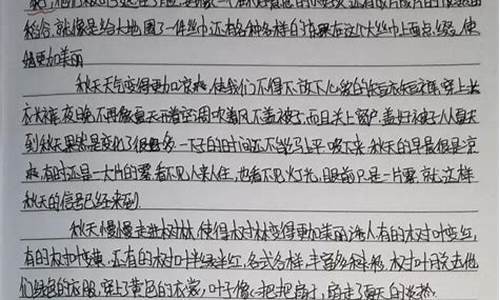 稻谷,就像是给大地围了一件丝巾还有各种各样的落果在这个大丝巾上面点缀,使
她更加美丽
秋天天气变得更加凉爽,使我们不得不放下心爱的短衣短裤,穿上长
衣长裤,夜晚不再像夏天开着空调吹着风不盖被子,而且关上窗户,盖好被子,从夏天
到秋天果然是变化了很多,一下子的时间还不能马上平
秋天的早晨很是凉
爽,有时还是一大片的雾,看不见人来人往,也看不见灯光,眼前只是一片雾,就这样
秋天的信号已经来到
秋天慢慢走进树林,使得树林变得更加美丽诱人,有的树叶变红,
有的树叶变黄,还有的树叶半绿半红,各式各样,丰富多彩,树叶脱去他
们绿色的衣服,穿上了黄色的衣裳,叶子像一把把扇子,扇走了夏天的炎热